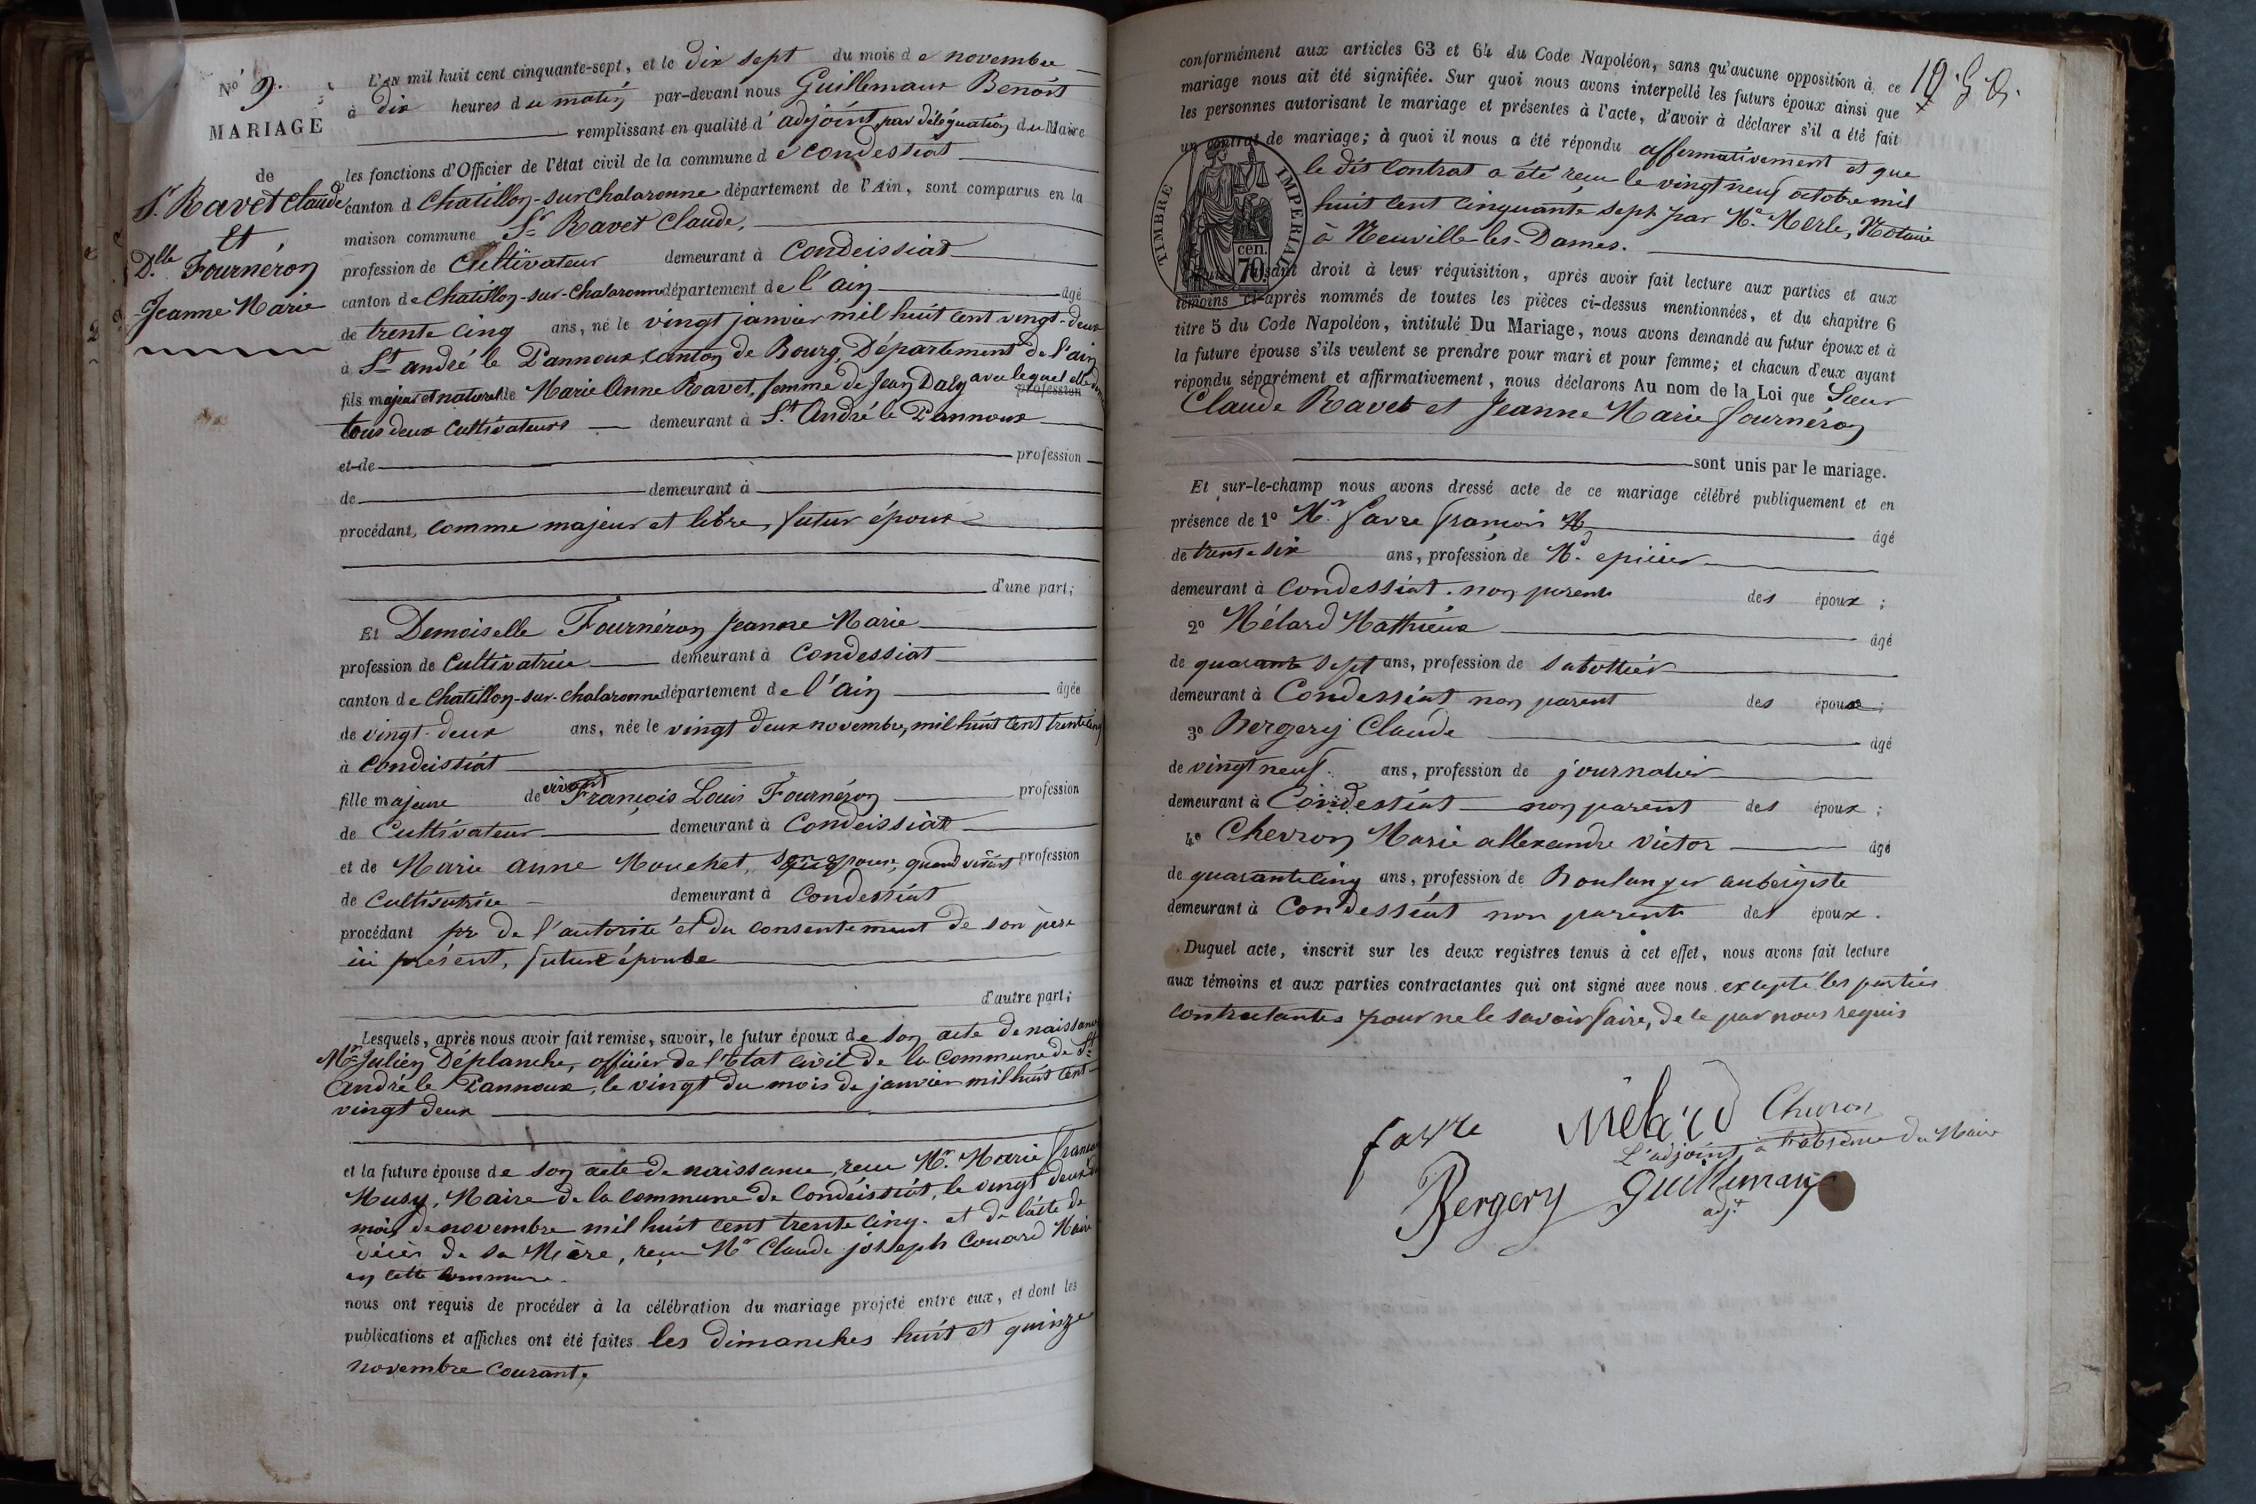 No 9.
MARIAGE
de
Sr. Ravet Claude
et
Dlle Fournéron
Jeanne Marie
L'an mil huit cent cinquante-sept, et le dix sept du mois de novembre
à dix heures du matin par-devant nous Guillemaux Benoît
remplissant en qualité d'adjoint par délégation du Maire
les fonctions d'Officier de l'état civil de la commune de Condessiat
canton d Chatillon-sur Chalaronne département de l'Ain, sont comparus en la
maison commune Sr Ravet Claude,
profession de Cultivateur demeurant à Condeissiat
canton de Chatillon-sur-Chalaronne département de l'ain âgé
de trente cinq ans, né le vingt janvier mil huit cent vingt-deux
à St andré le Pannoux canton de Bourg, Département de l'ain
fils majeur et naturel de Marie Anne Ravet, femme de Jean Daly avec lequel elle profession
tous deux Cultivateurs demeurant à St. André le Pannoux
et de profession
de demeurant à
procédant, comme majeur et libre, futur époux
d'une part;
Et Demoiselle Fournéron Jeanne Marie
profession de Cultivatrice demeurant à Condessiat
canton de Chatillon-sur-chalaronne département de l'ain âgée
de vingt-deux ans, née le vingt deux novembre, mil huit cent trente cinq
à Condeissiat
fille majeure de vivant François Louis Fournéron profession
de Cultivateur demeurant à Condeissiat
et de Marie anne Mouchet, son épouse, quand vivait profession
de Cultivatrice demeurant à Condessiat
procédant de l'autorité et du consentement de son père
ici présent, future épouse
d'autre part;
Lesquels, après nous avoir fait remise, savoir, le futur époux de son acte de naissance
Mr Julien Déplanche, officier de l'Etat civil de la Commune de St
André le Pannoux, le vingt du mois de janvier mil huit cent
vingt deux
et la future épouse de son acte de naissance, reçu Mr. Marie françois
Musy, Maire de la commune de Condeissiat, le vingt deux du
mois de novembre mil huit cent trente cinq. et de l'acte de
décès de sa Mère, reçu Mr Claude joseph Couard Maire
en cette commune.
nous ont requis de procéder à la célébration du mariage projeté entre eux, et dont les
publications et affiches ont été faites les dimanches huit et quinze
novembre courant,
conformément aux articles 63 et 64 du Code Napoléon, sans qu'aucune opposition à ce
mariage nous ait été signifiée. Sur quoi nous avons interpellé les futurs époux ainsi que
les personnes autorisant le mariage et présentes à l'acte, d'avoir à déclarer s'il a été fait
un contrat de mariage; à quoi il nous a été répondu affermativement et que
le dit Contrat a été reçu le vingt neuf octobre mil
huit cent cinquante sept par Me. Merle, Notaire
à Neuville les-Dames.
TIMBRE IMPERIAL
70 cen.
faisant droit à leur réquisition, après avoir fait lecture aux parties et aux
témoins ci-après nommés de toutes les pièces ci-dessus mentionnées, et du chapitre 6
titre 5 du Code Napoléon, intitulé Du Mariage, nous avons demandé au futur époux et à
la future épouse s'ils veulent se prendre pour mari et pour femme; et chacun d'eux ayant
répondu séparément et affirmativement, nous déclarons Au nom de la Loi que Sieur
Claude Ravet et Jeanne Marie fournéron
sont unis par le mariage.
Et sur-le-champ nous avons dressé acte de ce mariage célébré publiquement et en
présence de 1° Mr. favre françois âgé
de trente six ans, profession de Md. epicier
demeurant à Condessiat. non parent des époux;
2° Mélard Mathieux âgé
de quarante sept ans, profession de sabottier
demeurant à Condessiat non parent des époux;
3° Bergery Claude âgé
de vingt neuf ans, profession de journalier
demeurant à Condessiat non parent des époux;
4° Chevron Marie allexandre victor âgé
de quarante cinq ans, profession de Boulanger aubergiste
demeurant à Condessiat non parent des époux.
Duquel acte, inscrit sur les deux registres tenus à cet effet, nous avons fait lecture
aux témoins et aux parties contractantes qui ont signé avec nous excepté les parties
contractantes pour ne le savoir faire, de ce par nous requis
favre Mélard Chevron
L'adjoint à l'absence du Maire
Bergery Guillemaux
adjt